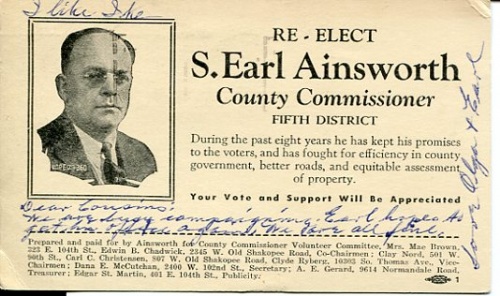 I like Ike
RE - ELECT
S. Earl Ainsworth
County Commissioner
FIFTH DISTRICT
During the past eight years he has kept his promises
to the voters, and has fought for efficiency in county
government, better roads, and equitable assessment
of property.
Your Vote and Support Will Be Appreciated
Love Olga & Earl
Dear Cousins:
We are busy campaigning. Earl hopes to
get in. We are all fine.
Prepared and paid for by Ainsworth for County Commissioner Volunteer Committee, Mrs. Mae Brown,
323 E. 104th St., Edwin B. Chadwick, 2345 W. Old Shakopee Road, Co-Chairmen; Clay Nord, 501 W.
90th St., Carl C. Christensen, 807 W. Old Shakopee Road, Clyde Ryberg, 10303 So. Thomas Ave., Vice-
Chairmen; Dana E. McCutchan, 2400 W. 102nd St., Secretary; A. E. Gerard, 9614 Normandale Road,
Treasurer; Edgar St. Martin, 401 E. 104th St., Publicity.
1